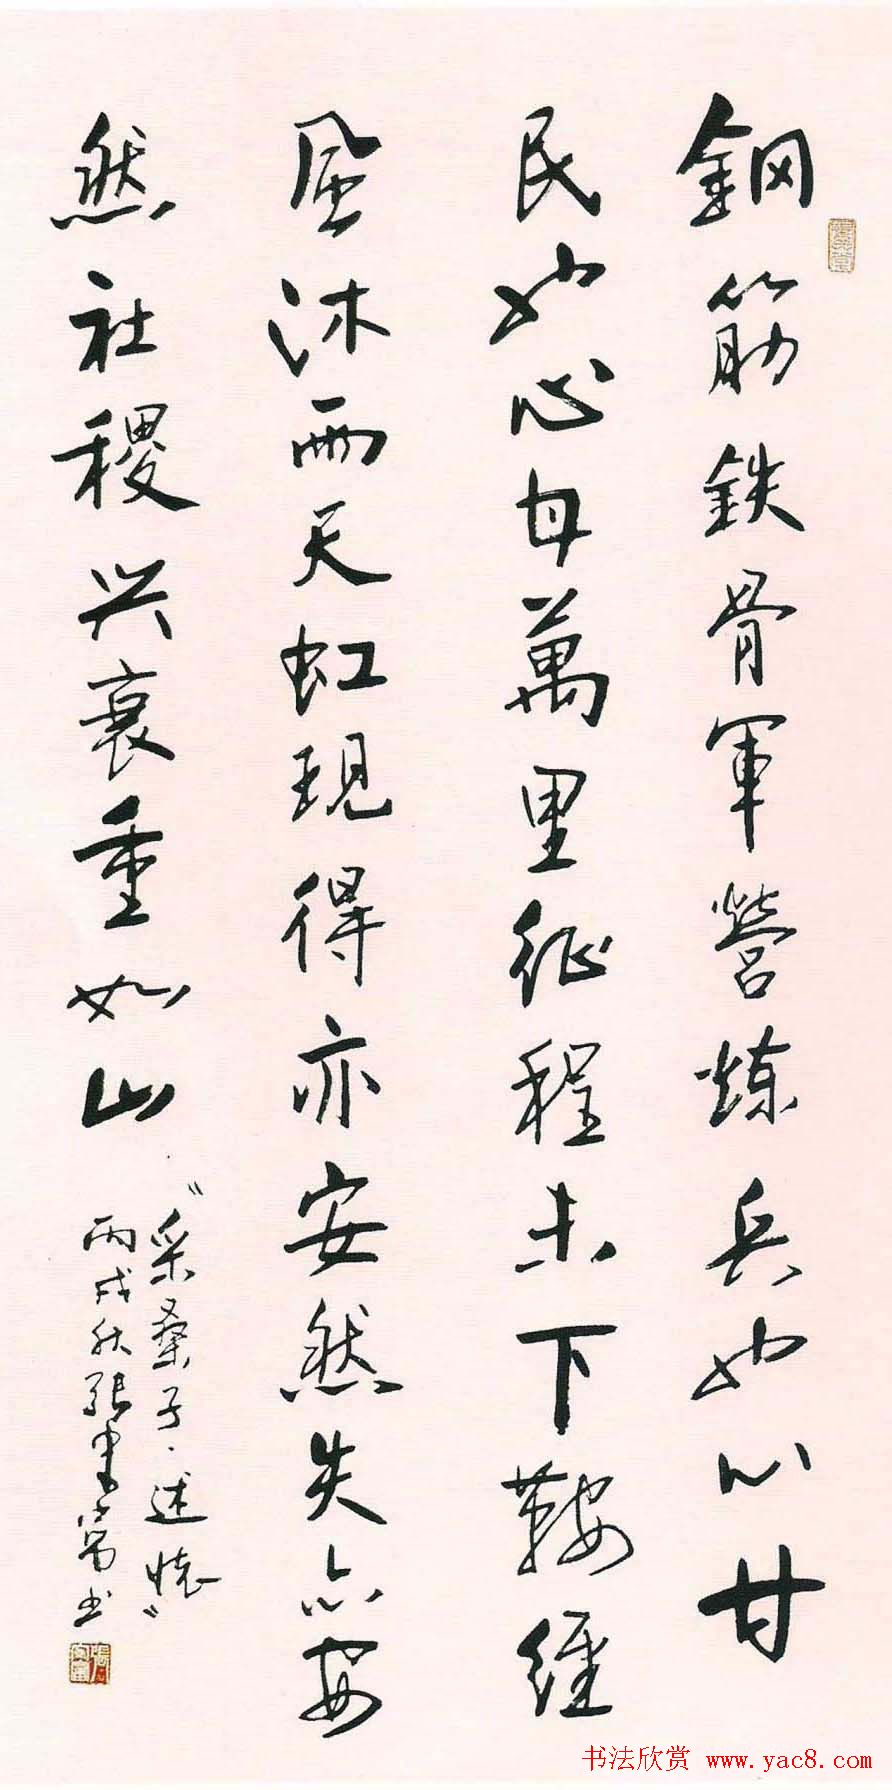 鋼筋鉄骨軍營炼兵也心甘
民也心甘萬里征程未下鞍經
風沐雨天虹現得亦安然失亦安
然社稷兴衰重如山
"采桑子·述懷"
丙戌秋張富书
书法欣赏 www.yac8.com